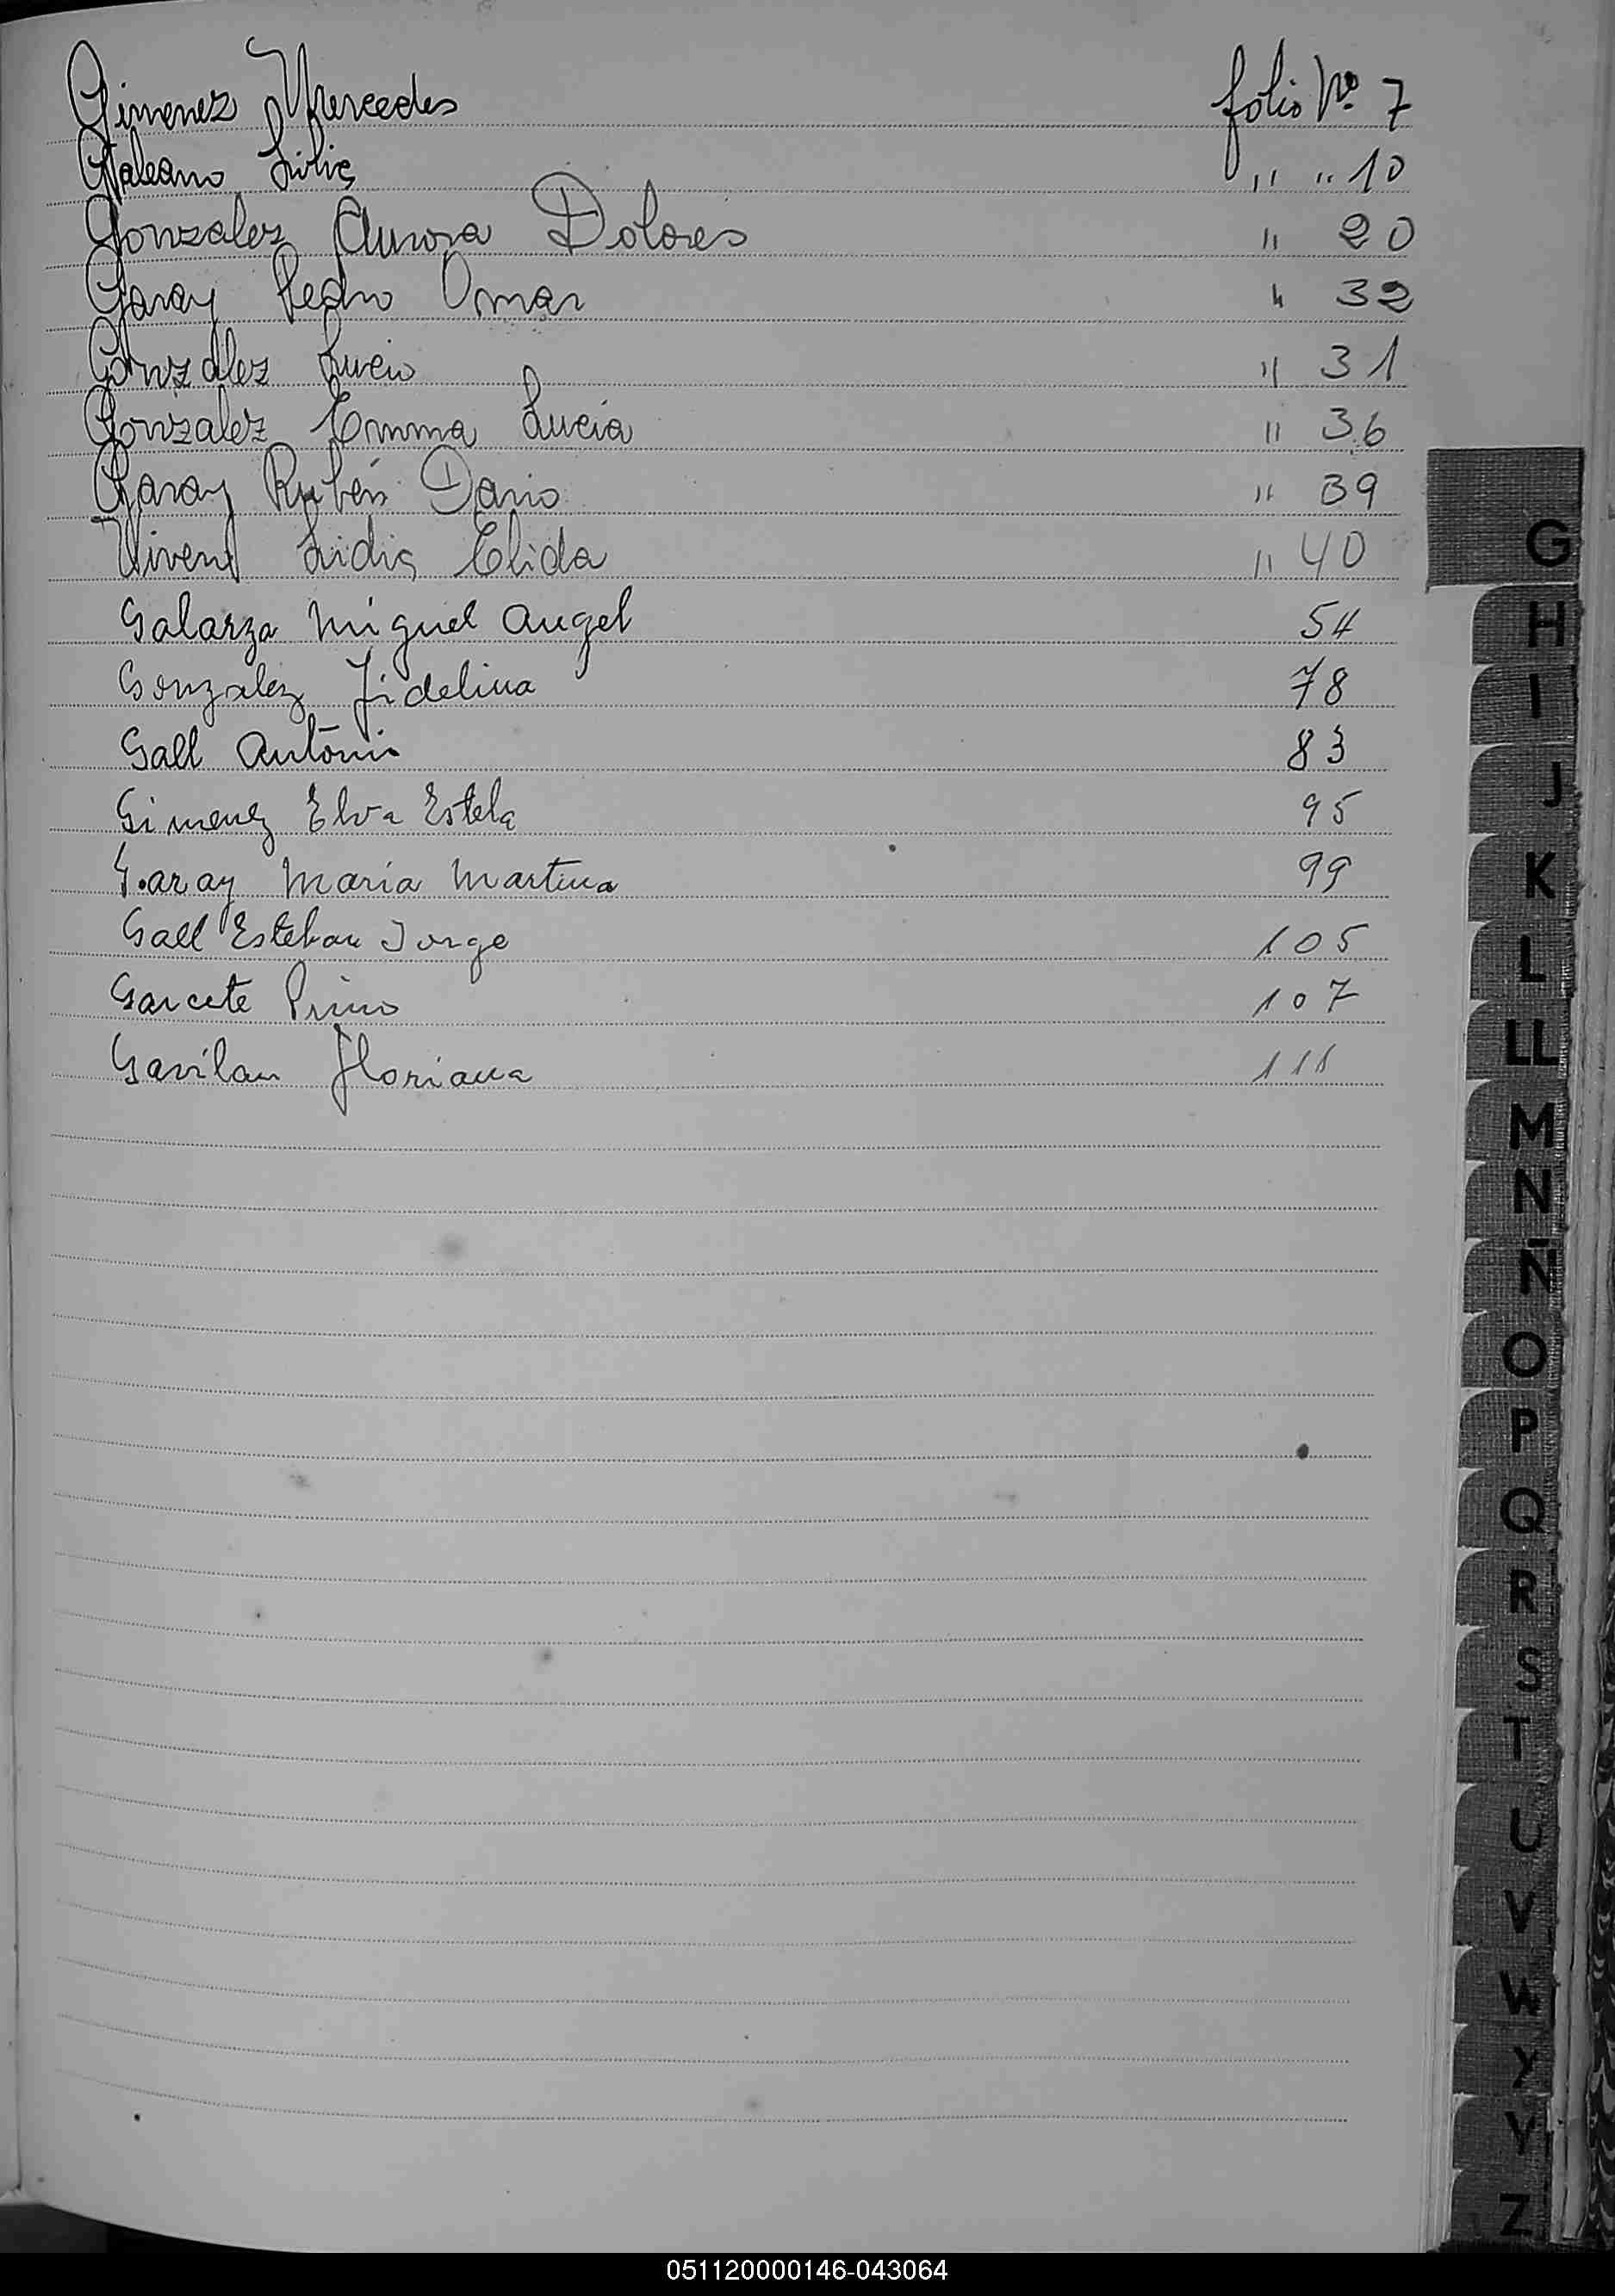 Gimenez Mercedes folio Nº 7
Galeano Livia " " 10
Gonzalez Aurora Dolores " 20
Garay Pedro Omar " 32
Gonzalez Lucio " 31
Gonzalez Emma Lucia " 36
Garay Rubén Dario " 39
Lidia Elida " 40
Galarza Miguel Angel 54
Gonzalez Fidelina 78
Gall Antonio 83
Gimenez Elva Estela 95
Garay Maria Martina 99
Gall Esteban Jorge 105
Garcete Primo 107
Gavilan Floriana 111
G
H
I
J
K
L
LL
M
N
Ñ
O
P
Q
R
S
T
U
V
W
X
Y
Z
051120000146-043064